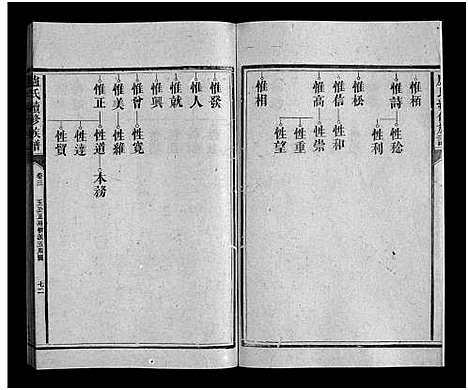 惟栢
惟詩
性稔
性利
惟松
惟信
性和
惟高
性崇
性重
性望
惟相
惟發
惟人
惟就
惟興
惟曾
性寬
惟美
性雍
惟正
性道
本務
性達
性貿
氏續修族譜
卷三
七二